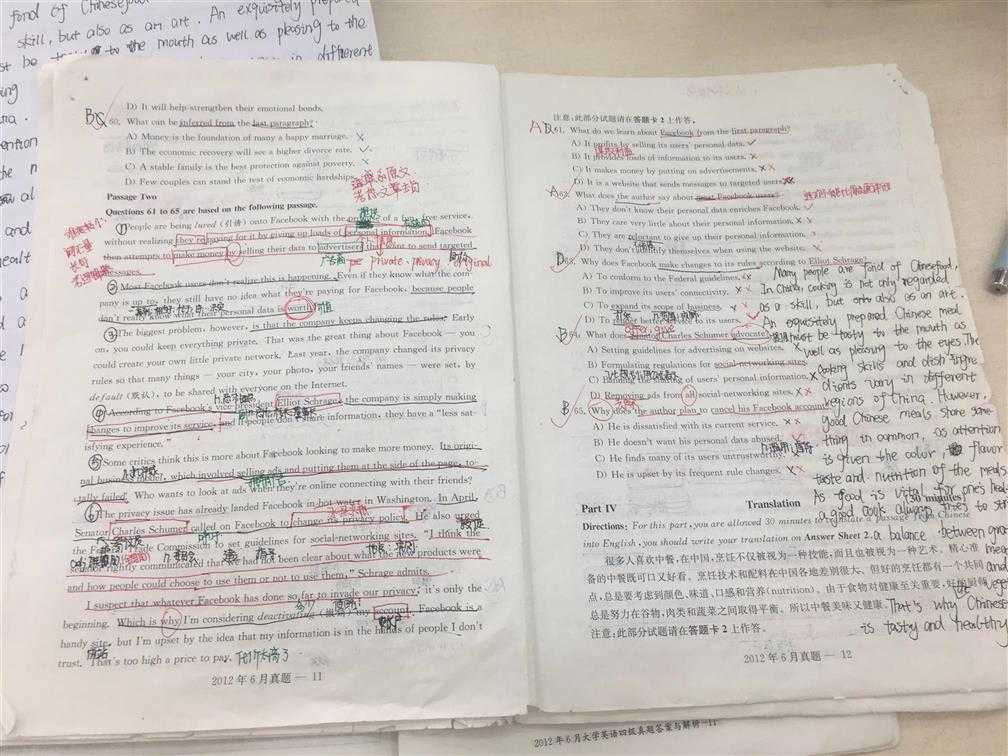 fond of Chinesefood
skill, but also as an art. An exquisitely prepared
be to the mouth as well as pleasing to the
different
D) It will help strengthen their emotional bonds.
60. What can be inferred from the last paragraph?
A) Money is the foundation of many a happy marriage.
B) The economic recovery will see a higher divorce rate.
C) A stable family is the best protection against poverty.
D) Few couples can stand the test of economic hardships.
Passage Two
Questions 61 to 65 are based on the following passage.
People are being lured (引诱) onto Facebook with the of a fun, free service,
without realizing they're paying for it by giving up loads of personal information. Facebook
then attempts to make money by selling their data to advertisers that want to send targeted
messages.
per private - privacy original
Most Facebook users don't realize this is happening. Even if they know what the com-
pany is up to, they still have no idea what they're paying for Facebook, because people
don't really know what their personal data is worth.
The biggest problem, however, is that the company keeps changing the rules. Early
on, you could keep everything private. That was the great thing about Facebook — you
could create your own little private network. Last year, the company changed its privacy
rules so that many things — your city, your photo, your friends' names — were set, by
default (默认), to be shared with everyone on the Internet.
According to Facebook's vice president Elliot Schrage, the company is simply making
changes to improve its service, and if people don't share information, they have a "less sat-
isfying experience."
Some critics think this is more about Facebook looking to make more money. Its origi-
nal business model, which involved selling ads and putting them at the side of the page, to-
tally failed. Who wants to look at ads when they're online connecting with their friends?
The privacy issue has already landed Facebook in hot water in Washington. In April,
Senator Charles Schumer called on Facebook to change its privacy policy. He also urged
the Federal Trade Commission to set guidelines for social-networking sites. "I think the
senator rightly communicated that we had not been clear about what the new products were
and how people could choose to use them or not to use them," Schrage admits.
I suspect that whatever Facebook has done so far to invade our privacy, it's only the
beginning. Which is why I'm considering deactivating my account. Facebook is a
handy site, but I'm upset by the idea that my information is in the hands of people I don't
trust. That's too high a price to pay. 代价太高了
2012 年 6 月真题 — 11
注意：此部分试题请在答题卡 2 上作答。
61. What do we learn about Facebook from the first paragraph?
A) It profits by selling its users' personal data.
B) It provides loads of information to its users.
C) It makes money by putting on advertisements.
D) It is a website that sends messages to targeted users.
62. What does the author say about most Facebook users?
A) They don't know their personal data enriches Facebook.
B) They care very little about their personal information.
C) They are reluctant to give up their personal information.
D) They don't identify themselves when using the website.
63. Why does Facebook make changes to its rules according to Elliot Schrage?
A) To conform to the Federal guidelines.
B) To improve its users' connectivity.
C) To expand its scope of business.
D) To better service to its users.
64. What does Senator Charles Schumer advocate?
A) Setting guidelines for advertising on websites.
B) Formulating regulations for social-networking sites
C) Banning the sharing of users' personal information.
D) Removing ads from all social-networking sites.
65. Why does the author plan to cancel his Facebook account?
A) He is dissatisfied with its current service.
B) He doesn't want his personal data abused.
C) He finds many of its users untrustworthy.
D) He is upset by its frequent rule changes.
Many people are fond of Chinesefood,
In China, cooking is not only regarded
as a skill, but also as an art.
An exquisitely prepared Chinese meal
must be tasty to the mouth as
well as pleasing to the eyes. The
Cooking skills and dish ingre
dients vary in different
regions of China. However,
good Chinese meals share some-
thing in common, as attention
is given the color, flavor
taste and nutrition of the meals.
As food is vital for ones heal
a good cook always tries to
a balance between
That's why Chinese
is tasty and healthy
Part IV Translation (30 minutes)
Directions: For this part, you are allowed 30 minutes to translate a passage from Chinese
into English, you should write your translation on Answer Sheet 2.
很多人喜欢中餐，在中国，烹饪不仅被视为一种技能，而且也被视为一种艺术。精心准
备的中餐既可口又好看。烹饪技术和配料在中国各地差别很大。但好的烹饪都有一个共同
点，总是要考虑到颜色、味道、口感和营养(nutrition)。由于食物对健康至关重要，好的厨师
总是努力在谷物、肉类和蔬菜之间取得平衡。所以中餐美味又健康。
注意：此部分试题请在答题卡 2 上作答。
2012 年 6 月真题 — 12
2012 年 6 月大学英语四级真题答案与解析 —11